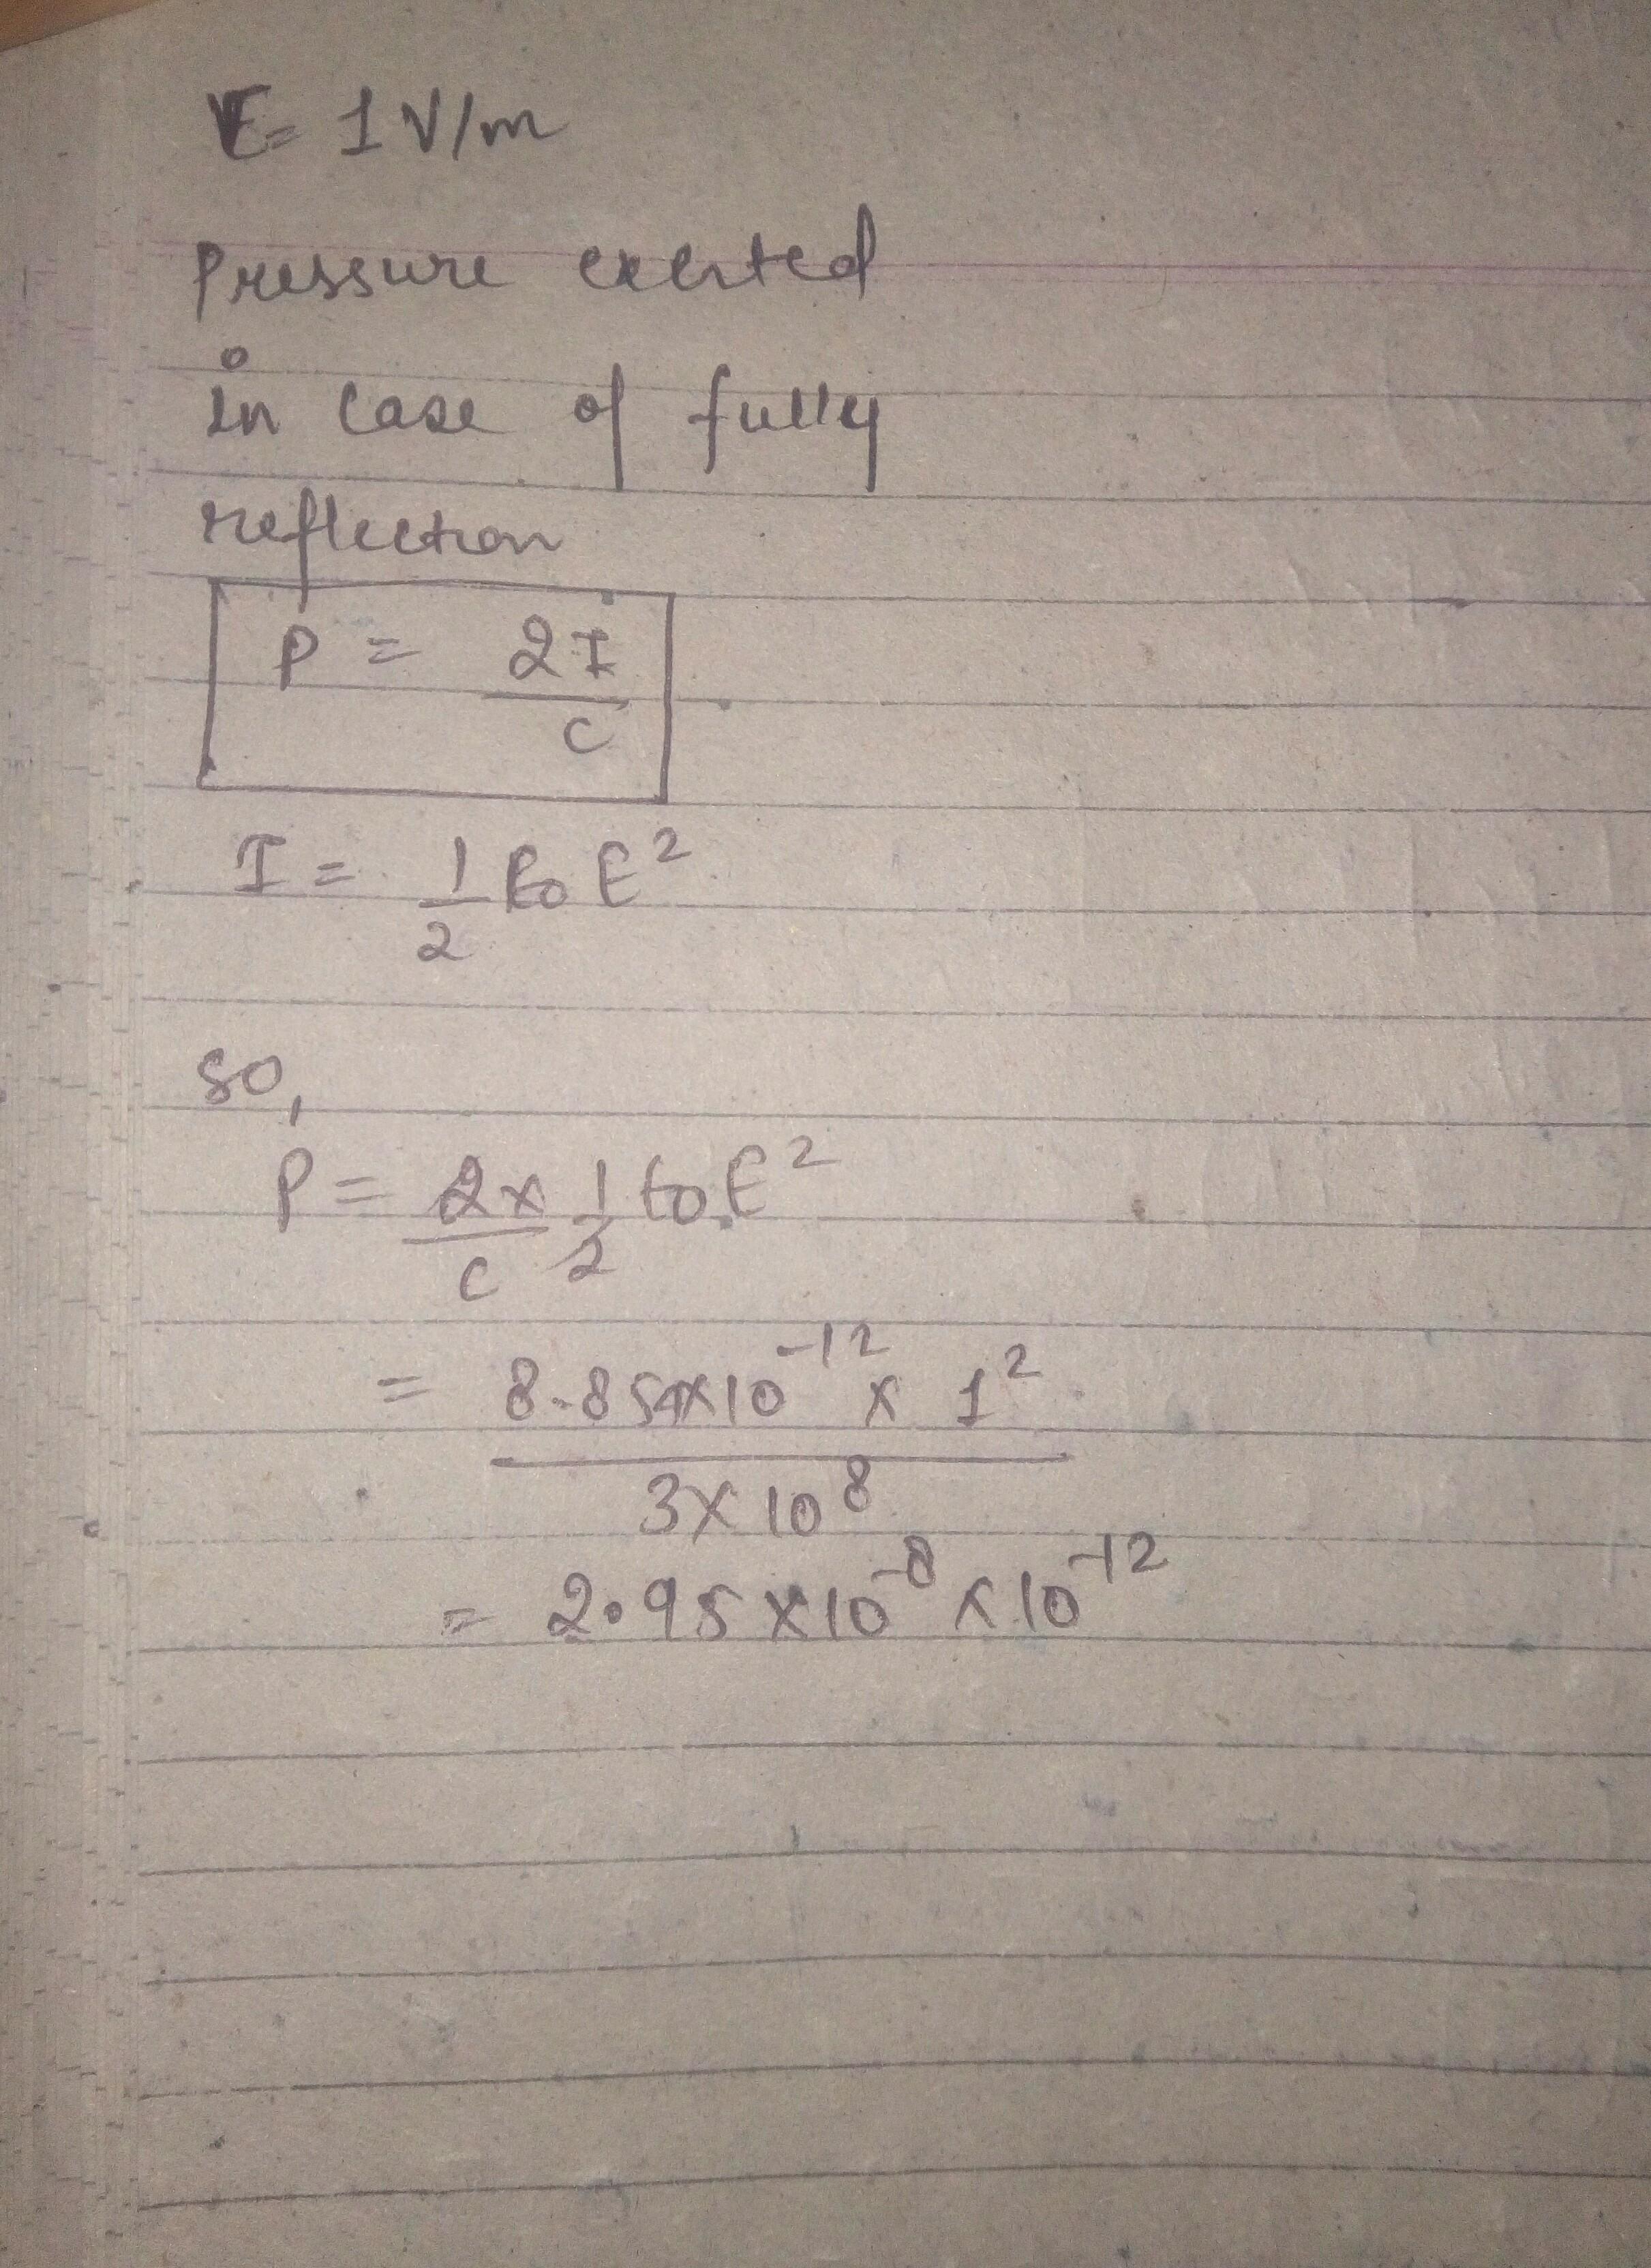 E = 1 V/m
Pressure exerted
in case of fully
reflection
P = 2I/c
I = 1/2 ε₀ E²
so,
P = 2×/c 1/2 ε₀ E²
= 8.854×10⁻¹² × 1² / 3×10⁸
= 2.95 ×10⁻⁸ × 10⁻¹²